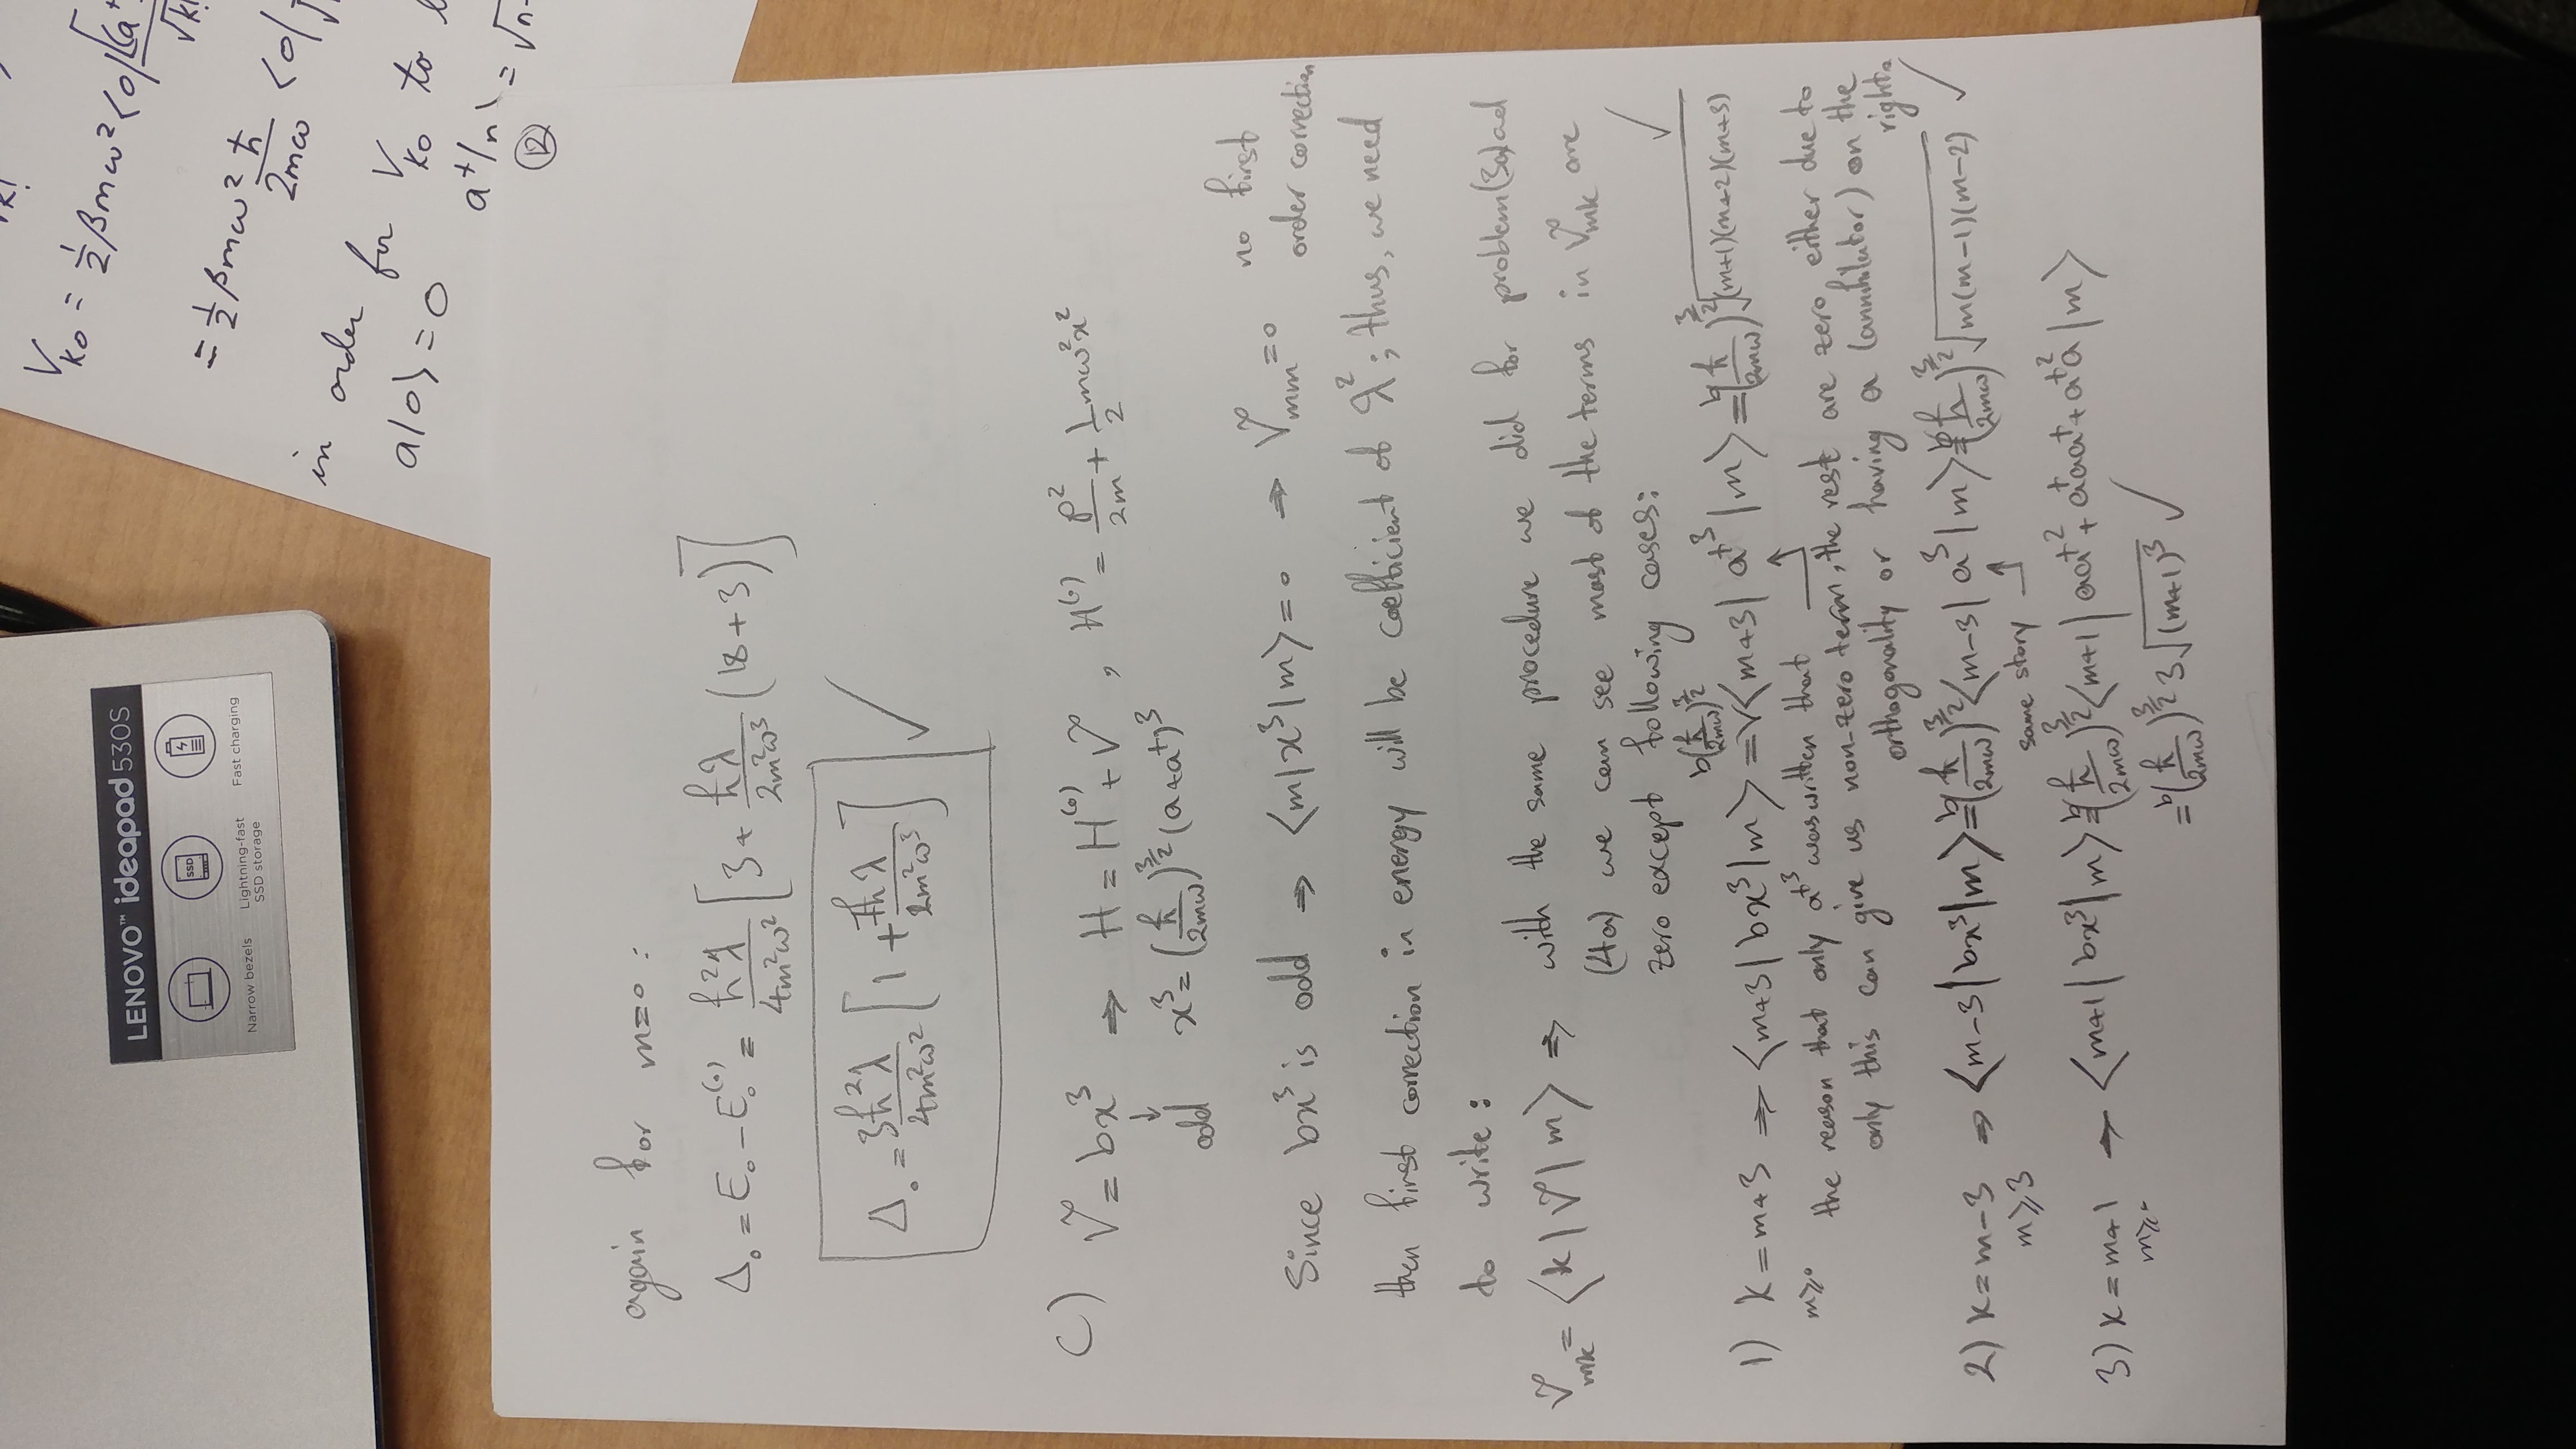 LENOVO™ ideapad 530S
Narrow bezels
SSD
Lightning-fast SSD storage
Fast charging
√k!
V_k0 = 1/2 βmω² <0|[(a⁺
√k!
= 1/2 βmω² ħ/2mω <0|
in order for V_k0 to
a|0> = 0
a⁺|n> = √n
12
again for m=0 :
Δ₀ = E₀ - E₀⁽⁰⁾ = ħ²λ/4m²ω² [3 + ħλ/2m²ω³ (18+3)]
Δ₀ = 3ħ²λ/4m²ω² [1 + 7ħλ/2m²ω³] ✓
C) Ṽ = bx³ ⇒ H = H⁽⁰⁾ + Ṽ , H⁽⁰⁾ = p²/2m + 1/2 mω²x²
↓
odd x³ = (ħ/2mω)^3/2 (a+a⁺)³
Since bx³ is odd ⇒ <m|x³|m> = 0 ⇒ Ṽmm = 0 no first order correction
then first correction in energy will be coefficient of λ²; thus, we need
to write :
Ṽmk = <k|Ṽ|m> ⇒ with the same procedure we did for problem (3a) ad
(4a) we can see most of the terms in Ṽmk are
zero except following cases:
1) k = m+3 ⇒ <m+3|bx³|m> = b(ħ/2mω)^3/2 <m+3|a⁺³|m> = b(ħ/2mω)^3/2 √(m+1)(m+2)(m+3) ✓
m≥0 the reason that only a⁺³ was written that
only this can give us non-zero term, the rest are zero either due to
orthogonality or having a (annihilator) on the right.
2) k = m-3 ⇒ <m-3|bx³|m> = b(ħ/2mω)^3/2 <m-3|a³|m> = b(ħ/2mω)^3/2 √m(m-1)(m-2) ✓
m≥3 same story
3) k = m+1 → <m+1|bx³|m> = b(ħ/2mω)^3/2 <m+1|aa⁺² + a⁺aa⁺ + a⁺²a|m>
m≥0
= b(ħ/2mω)^3/2 3√(m+1)³ ✓